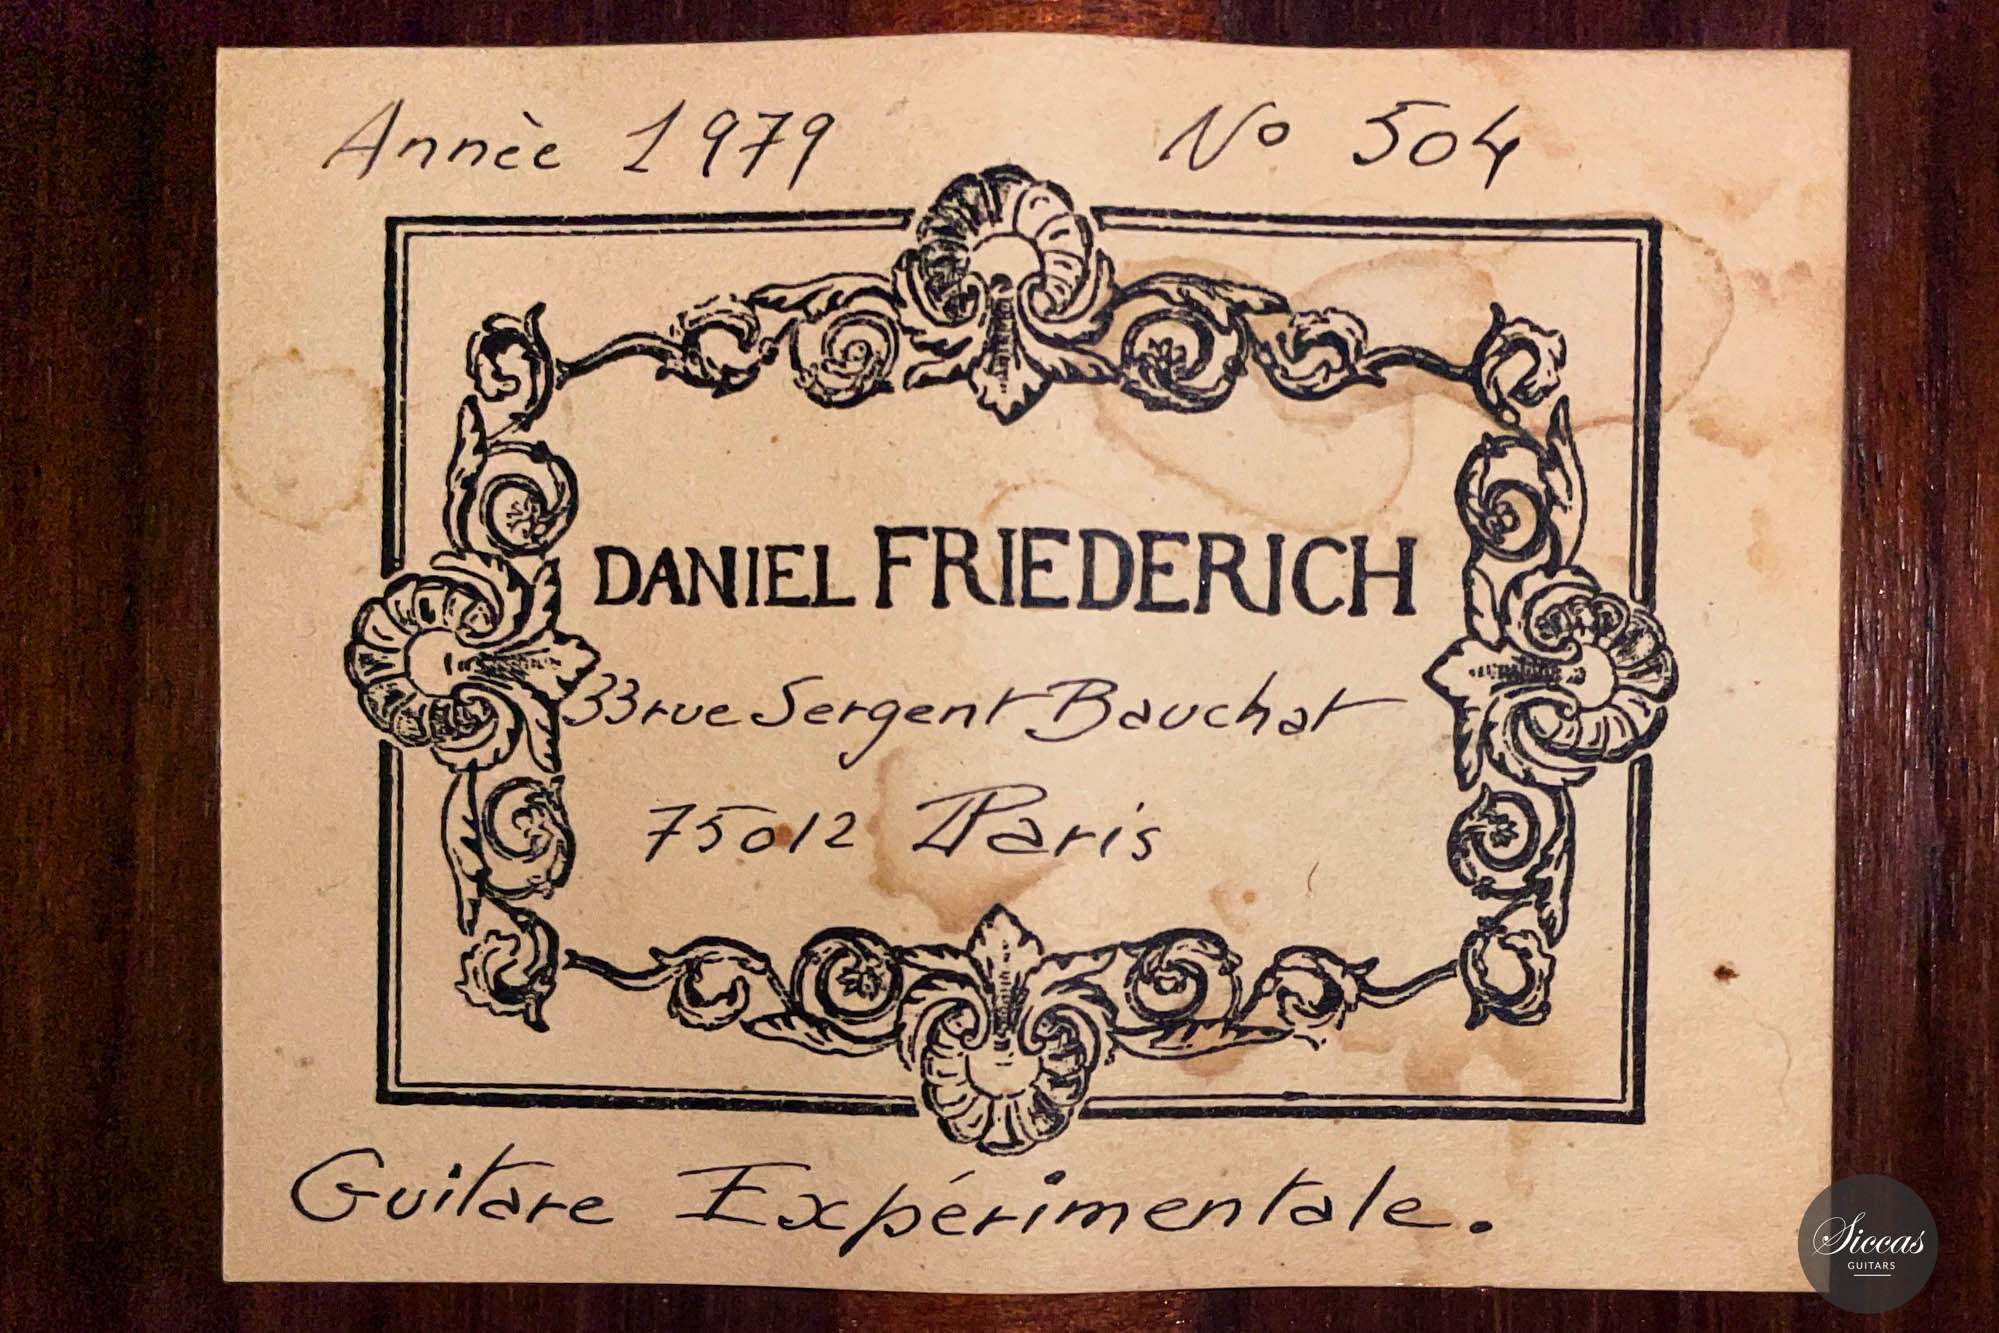 Annèe 1979 No 504
DANIEL FRIEDERICH
33 rue Sergent Bauchat
75012 Paris
Guitare Expérimentale.
Siccas
GUITARS